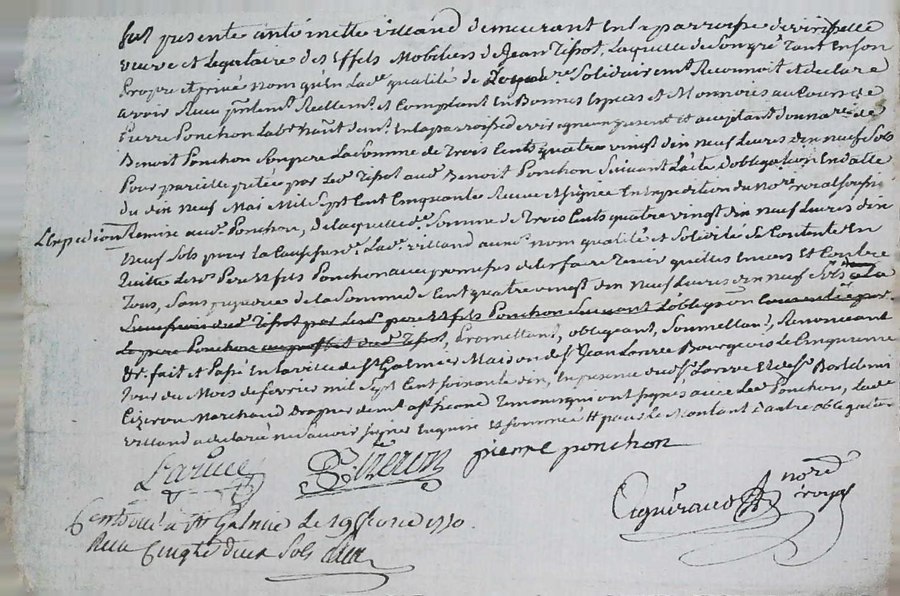 fut presente antoinette villand demeurant en la parroisse de virisselle
veuve et legataire des Effets Mobiliers de Jean Tissot, Laquelle de Son gré tant en Son
Propre et privé nom qu'en Lad. qualité de Solidairemt. Reconnoit et declare
avoir Receu Reellemt. et Comptant En Bonnes Especes et Monnoies au Cours de
Pierre Ponchon Labr. habitant de en la parroisse de present et acceptant des deniers de
Benoit Ponchon Son pere La Somme de Trois Cents quatre vingt dix neuf Livres dix neuf Sols
Pour pareille pretée par Led. Tissot aud. Benoit Ponchon Suivant L'acte d'obligation En datte
du dix neuf Mai Mil Sept Cent Cinquante Receue et Signée En expedition du nore. roial soussigné
L'Expedition Remise aud. Ponchon, de laquelle de. Somme de Trois Cents quatre vingt dix neuf Livres dix
neuf Sols pour la Cause susd. Lad. villand aud. nom qualité et Solidité Se Contente En
Quitte Lesd. Pere et fils Ponchon avec promesse de les faire Tenir quittes Envers et Contre
Tous, Sans prejudice de la Somme de Cent quatre vingt dix neuf Livres dix neuf Sols a La
par Les pere et fils Ponchon Suivant L'obligaon Consentie par
Le pere Ponchon au proffit dud. Tissot, Promettant, obligeant, Soumettant, Renonceant
&c. fait et Passé En la ville de St. Galmier Maison de Sr. Jean Larue Bourgeois Le Cinquieme
Jour du Mois de fevrier mil Sept Cent Soixante dix, En presence dud. Sr. Larue et de Sr. Bartelemi
Cizeron Marchand Drapier demt. a St. Etienne Temoins qui ont Signés avec Led. Ponchon, Lade.
villand a declaré ne Savoir Signer Enquise et Sommée # pour le Montant d'autre obligation
Larue Cizeron pierre ponchon
nore. royal
Controllé a St. Galmier Le 19 fevrier 1770.
Receu Cinqte. deux Sols